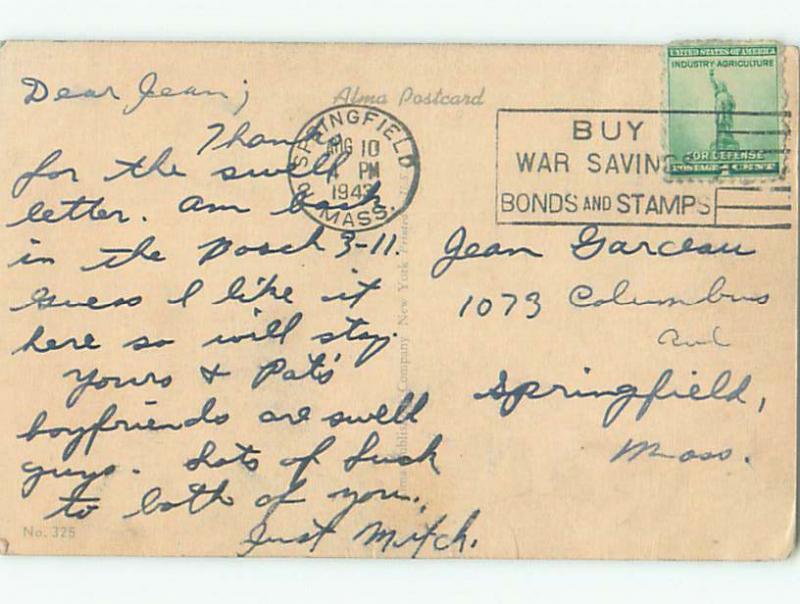 Dear Jean;
Thanks
for the swell
letter. Am back
in the Bosch 3-11.
Guess I like it
here so will stay.
Yours & Pat's
boyfriends are swell
guys. Lots of luck
to both of you,
Just Mitch.
No. 325
Alma Postcard
SPRINGFIELD
AUG 10
PM
MASS.
BUY
WAR SAVINGS
BONDS AND STAMPS
UNITED STATES OF AMERICA
INDUSTRY·AGRICULTURE
FOR DEFENSE
POSTAGE 1 CENT
Jean Garceau
1073 Columbus
Springfield,
Mass.
Company New York Printed